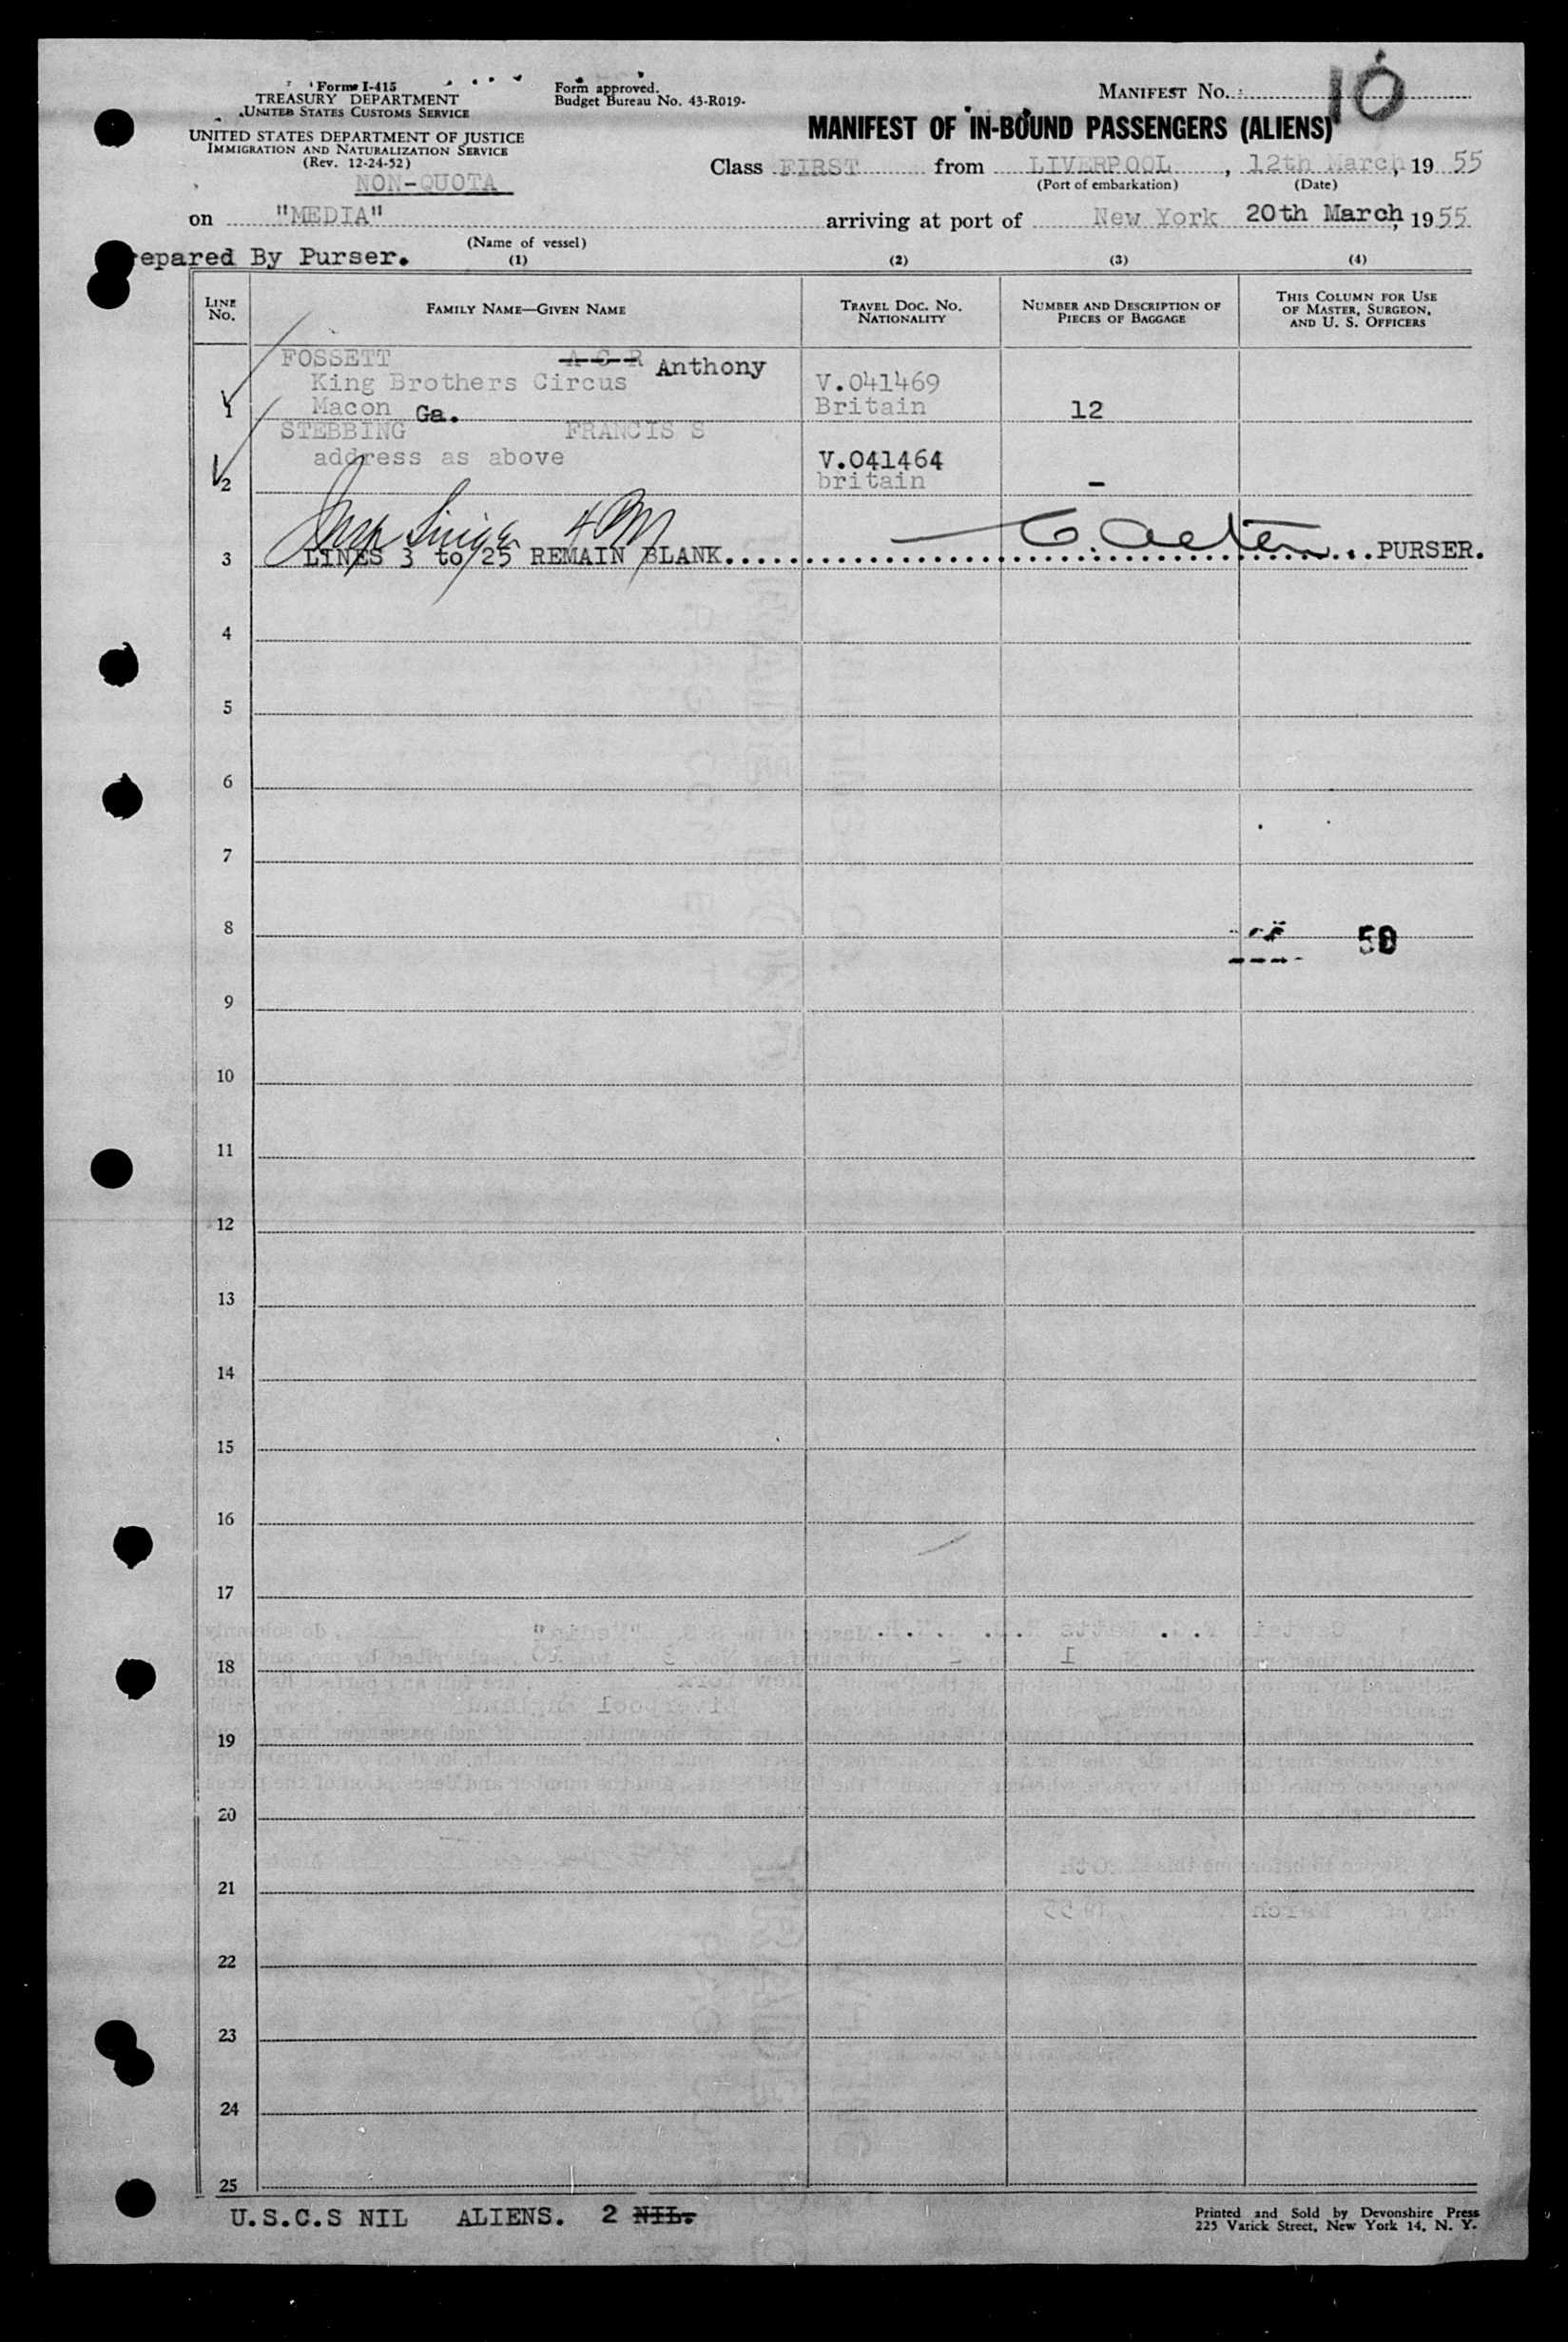 Form I-415
TREASURY DEPARTMENT
UNITED STATES CUSTOMS SERVICE
UNITED STATES DEPARTMENT OF JUSTICE
IMMIGRATION AND NATURALIZATION SERVICE
(Rev. 12-24-52)
NON-QUOTA
Form approved.
Budget Bureau No. 43-R019.
MANIFEST No. 10
MANIFEST OF IN-BOUND PASSENGERS (ALIENS)
Class FIRST from LIVERPOOL, 12th March, 19 55
(Port of embarkation) (Date)
on "MEDIA" arriving at port of New York 20th March, 1955
(Name of vessel)
epared By Purser.
(1) (2) (3) (4)
LINE No.
FAMILY NAME—GIVEN NAME
TRAVEL DOC. NO. NATIONALITY
NUMBER AND DESCRIPTION OF PIECES OF BAGGAGE
THIS COLUMN FOR USE OF MASTER, SURGEON, AND U. S. OFFICERS
FOSSETT A G R Anthony
King Brothers Circus V.041469
1 Macon Ga. Britain 12
STEBBING FRANCIS S
address as above V.041464
2 britain -
3 LINES 3 to 25 REMAIN BLANK. PURSER.
4
5
6
7
8 50
9
10
11
12
13
14
15
16
17
18
19
20
21
22
23
24
25
U.S.C.S NIL ALIENS. 2 NIL.
Printed and Sold by Devonshire Press
225 Varick Street, New York 14, N. Y.